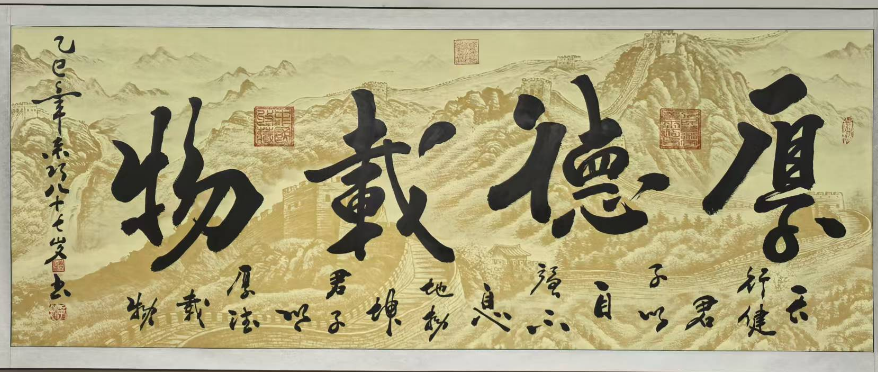 厚德載物
天行健君子以自强不息地势坤君子以厚德載物
乙巳年八十七岁书